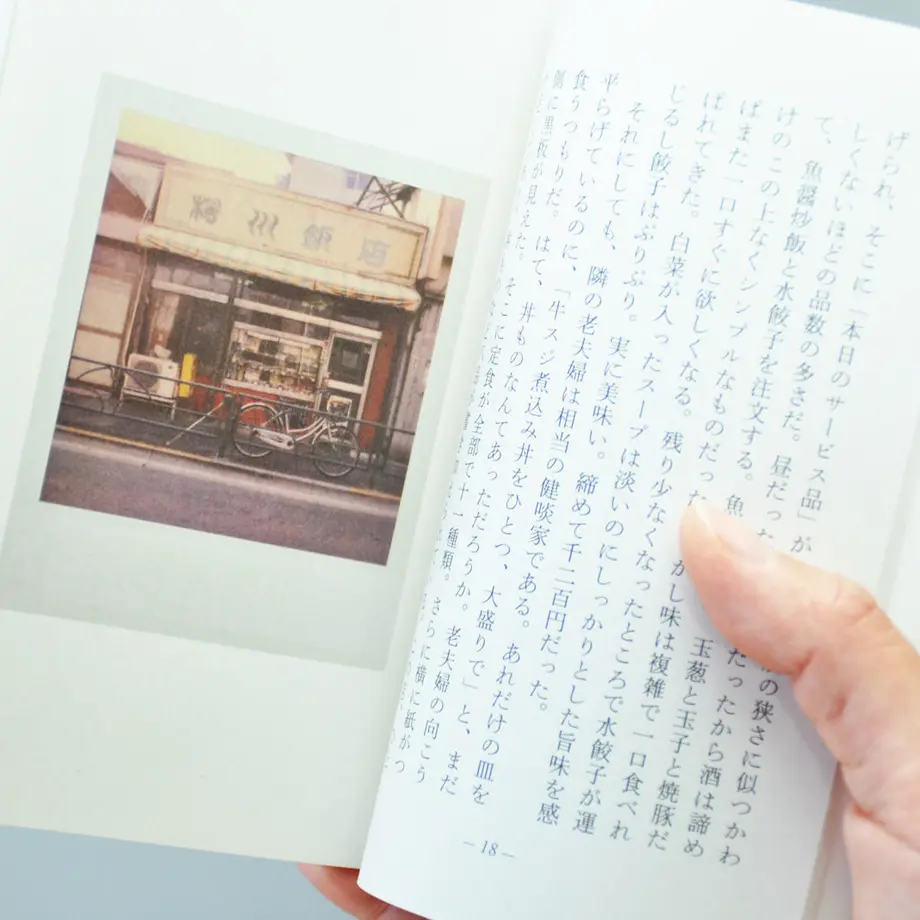 川飯店
げられ、そこに「本日のサービス品」が の狭さに似つかわ
しくないほどの品数の多さだ。昼だったから酒は諦め
て、魚醤炒飯と水餃子を注文する。魚 玉葱と玉子と焼豚だ
けのこの上なくシンプルなものだった かし味は複雑で一口食べれ
ばまた一口すぐに欲しくなる。残り少なくなったところで水餃子が運
ばれてきた。白菜が入ったスープは淡いのにしっかりとした旨味を感
じるし餃子はぷりぷり。実に美味い。締めて千二百円だった。
それにしても、隣の老夫婦は相当の健啖家である。あれだけの皿を
平らげているのに、「牛スジ煮込み丼をひとつ、大盛りで」と、まだ
食うつもりだ。はて、丼ものなんてあっただろうか。老夫婦の向こう
側に黒板が見えた。そこに定食が全部で十一種類。さらに横に紙がつ
—18—